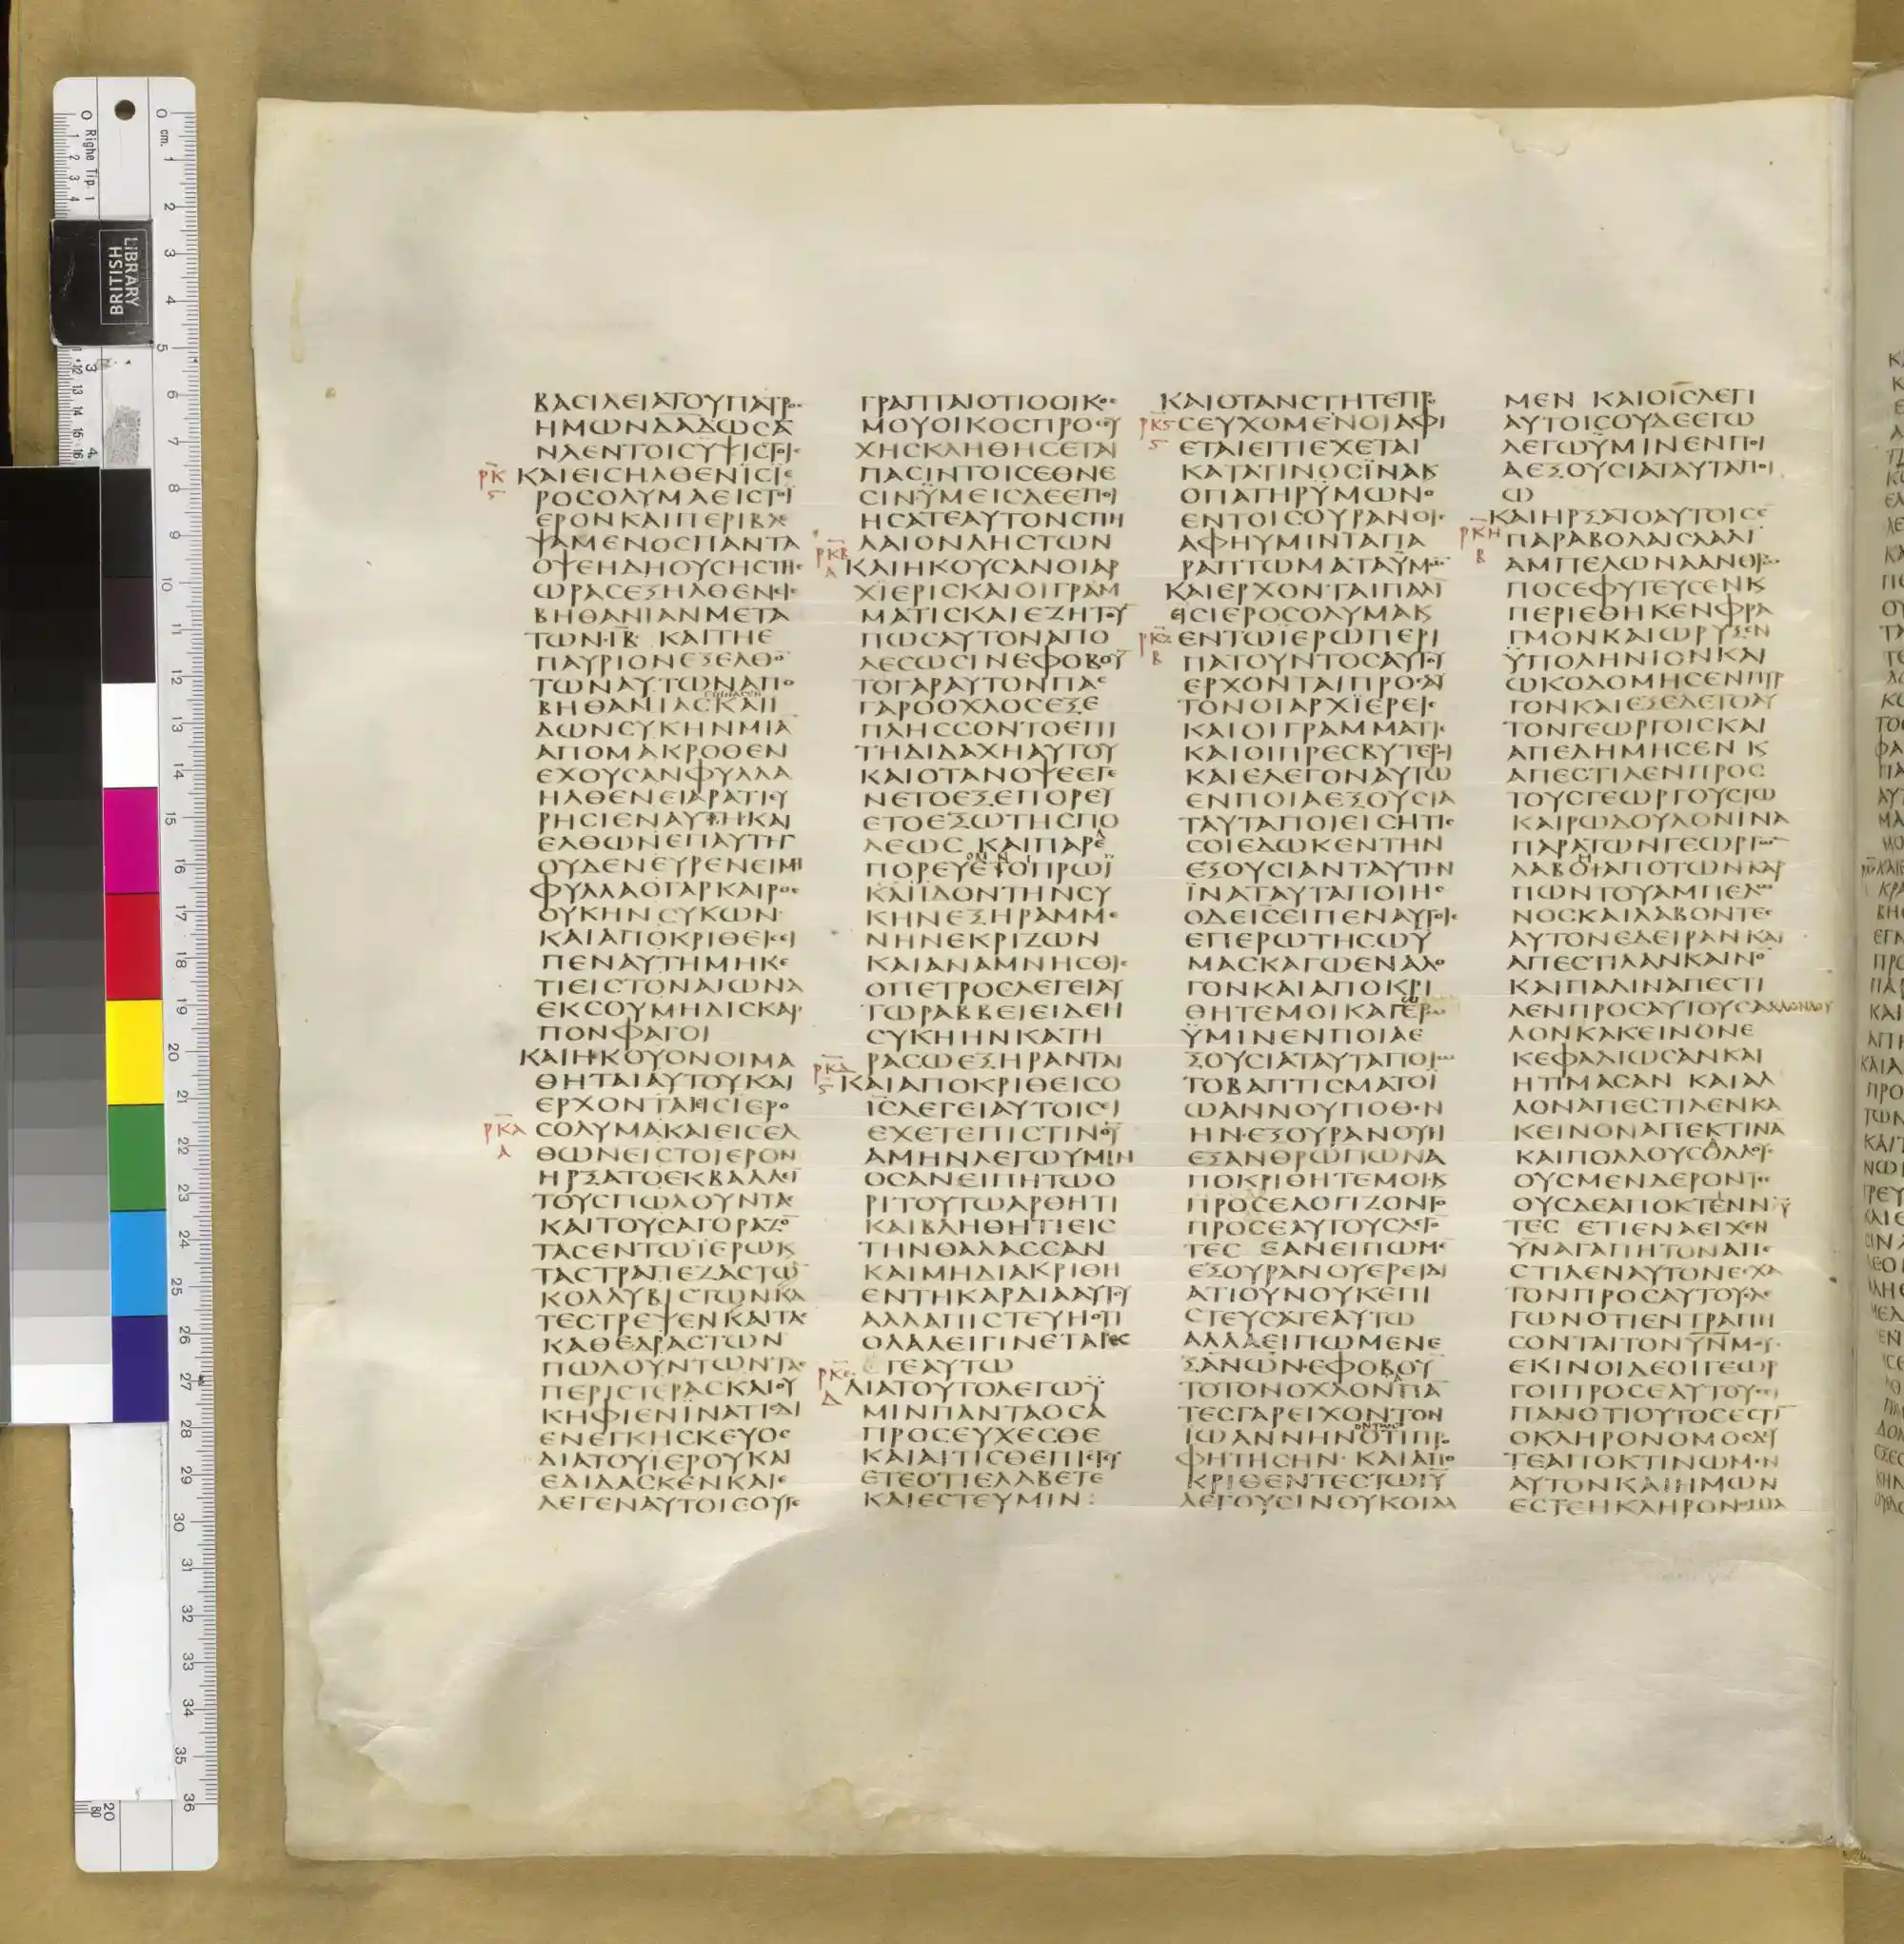 ΒΑϹΙΛΕΙΑΤΟΥΠΑΤΡΟϹ
ΗΜΩΝΔΑΔΩϹΑ̅
ΝΑΕΝΤΟΙϹΥΨΙϹΤΟΙϹ
ΡΚ ΚΑΙΕΙϹΗΛΘΕΝΙϹΙΕ
Ϛ ΡΟϹΟΛΥΜΑΕΙϹΤΟΪ
ΕΡΟΝΚΑΙΠΕΡΙΒΛΕ
ΨΑΜΕΝΟϹΠΑΝΤΑ
ΟΨΕΗΔΗΟΥϹΗϹΤΗϹ
ΩΡΑϹΕΞΗΛΘΕΝΕΙϹ
ΒΗΘΑΝΙΑΝΜΕΤΑ
ΤΩΝ·Ι̅Β̅· ΚΑΙΤΗΕ
ΠΑΥΡΙΟΝΕΞΕΛΘΟ̅
ΤΩΝΑΥΤΩΝΑΠΟ
ΒΗΘΑΝΙΑϹΚΑΙΙ
ΔΩΝϹΥΚΗΝΜΙΑ̅
ΑΠΟΜΑΚΡΟΘΕΝ
ΕΧΟΥϹΑΝΦΥΛΛΑ
ΗΛΘΕΝΕΙΑΡΑΤΙΕΥ
ΡΗϹΙΕΝΑΥΤΗΚΑΙ
ΕΛΘΩΝΕΠΑΥΤΗΝ
ΟΥΔΕΝΕΥΡΕΝΕΙΜΗ
ΦΥΛΛΑΟΓΑΡΚΑΙΡΟϹ
ΟΥΚΗΝϹΥΚΩΝ·
ΚΑΙΑΠΟΚΡΙΘΕΙϹΕΙ
ΠΕΝΑΥΤΗΜΗΚΕ
ΤΙΕΙϹΤΟΝΑΙΩΝΑ
ΕΚϹΟΥΜΗΔΙϹΚΑΡ
ΠΟΝΦΑΓΟΙ
ΚΑΙΗΚΟΥΟΝΟΙΜΑ
ΘΗΤΑΙΑΥΤΟΥΚΑΙ
ΕΡΧΟΝΤΑΙΕΙϹΙΕΡΟ
ΡΚΑ ϹΟΛΥΜΑΚΑΙΕΙϹΕΛ
Α ΘΩΝΕΙϹΤΟΙΕΡΟΝ
ΗΡΞΑΤΟΕΚΒΑΛΛΕΙ̅
ΤΟΥϹΠΩΛΟΥΝΤΑϹ
ΚΑΙΤΟΥϹΑΓΟΡΑΖΟ̅
ΤΑϹΕΝΤΩΪΕΡΩΚ
ΤΑϹΤΡΑΠΕΖΑϹΤΩ̅
ΚΟΛΛΥΒΙϹΤΩΝΚΑ
ΤΕϹΤΡΕΨΕΝΚΑΙΤΑϹ
ΚΑΘΕΔΡΑϹΤΩΝ
ΠΩΛΟΥΝΤΩΝΤΑϹ
ΠΕΡΙϹΤΕΡΑϹΚΑΙΟΥ
ΚΗΦΙΕΝΪΝΑΤΙϹΔΙ
ΕΝΕΓΚΗϹΚΕΥΟϹ
ΔΙΑΤΟΥΪΕΡΟΥΚΑΙ
ΕΔΙΔΑϹΚΕΝΚΑΙΕ
ΛΕΓΕΝΑΥΤΟΙϹΟΥΓΕ
ΓΡΑΠΤΑΙΟΤΙΟΟΙΚΟϹ
ΜΟΥΟΙΚΟϹΠΡΟϹΕΥ
ΧΗϹΚΛΗΘΗϹΕΤΑΙ
ΠΑϹΙΝΤΟΙϹΕΘΝΕ
ϹΙΝΫΜΕΙϹΔΕΕΠΟΙ
ΗϹΑΤΕΑΥΤΟΝϹΠΗ
ΛΑΙΟΝΛΗϹΤΩΝ
ΡΚΒ Α ΚΑΙΗΚΟΥϹΑΝΟΙΑΡ
ΧΙΕΡΙϹΚΑΙΟΙΓΡΑΜ
ΜΑΤΙϹΚΑΙΕΖΗΤΟΥ
ΠΩϹΑΥΤΟΝΑΠΟ
ΛΕϹΩϹΙΝΕΦΟΒΟΥ̅
ΤΟΓΑΡΑΥΤΟΝΠΑϹ
ΓΑΡΟΟΧΛΟϹΕΞΕ
ΠΛΗϹϹΟΝΤΟΕΠΙ
ΤΗΔΙΔΑΧΗΑΥΤΟΥ
ΚΑΙΟΤΑΝΟΨΕΕΓΕ
ΝΕΤΟΕΞΕΠΟΡΕΥ
ΕΤΟΕΞΩΤΗϹΠΟ
ΛΕΩϹ ΚΑΙΠΑΡΕ
ΠΟΡΕΥΕΤΟΠΡΩΪ
ΚΑΙΪΔΟΝΤΗΝϹΥ
ΚΗΝΕΞΗΡΑΜΜΕ
ΝΗΝΕΚΡΙΖΩΝ
ΚΑΙΑΝΑΜΝΗϹΘΙϹ
ΟΠΕΤΡΟϹΛΕΓΕΙΑΥ
ΤΩΡΑΒΒΕΙΕΙΔΕΗ
ϹΥΚΗΗΝΚΑΤΗ
ΡΑϹΩΕΞΗΡΑΝΤΑΙ
Ϛ ΚΑΙΑΠΟΚΡΙΘΕΙϹΟ
Ι̅Ϲ̅ΛΕΓΕΙΑΥΤΟΙϹΕΙ
ΕΧΕΤΕΠΙϹΤΙΝΘ̅Υ̅
ΑΜΗΝΛΕΓΩΥΜΙΝ
ΟϹΑΝΕΙΠΗΤΩΟ
ΡΙΤΟΥΤΩΑΡΘΗΤΙ
ΚΑΙΒΛΗΘΗΤΙΕΙϹ
ΤΗΝΘΑΛΑϹϹΑΝ
ΚΑΙΜΗΔΙΑΚΡΙΘΗ
ΕΝΤΗΚΑΡΔΙΑΑΥΤΟΥ
ΑΛΛΑΠΙϹΤΕΥΗΟΤΙ
ΟΛΑΛΕΙΓΙΝΕΤΑΙ
ΓΕΑΥΤΩ
ΡΚΕ Δ ΔΙΑΤΟΥΤΟΛΕΓΩΫ
ΜΙΝΠΑΝΤΑΟϹΑ
ΠΡΟϹΕΥΧΕϹΘΕ
ΚΑΙΑΙΤΙϹΘΕΠΙϹΤΕΥ
ΕΤΕΟΤΙΕΛΑΒΕΤΕ
ΚΑΙΕϹΤΕΥΜΙΝ:
ΚΑΙΟΤΑΝϹΤΗΤΕΠΡΟϹ
ΡΚϚ ϹΕΥΧΟΜΕΝΟΙΑΦΙ
Ϛ ΕΤΑΙΕΙΤΙΕΧΕΤΑΙ
ΚΑΤΑΤΙΝΟϹΪΝΑΚ
ΟΠΑΤΗΡΫΜΩΝΟ
ΕΝΤΟΙϹΟΥΡΑΝΟΙϹ
ΑΦΗΥΜΙΝΤΑΠΑ
ΡΑΠΤΩΜΑΤΑΫΜΩΝ
ΚΑΙΕΡΧΟΝΤΑΙΠΑΛΙ̅
ΕΙϹΙΕΡΟϹΟΛΥΜΑΚ
ΡΚΖ ΕΝΤΩΪΕΡΩΠΕΡΙ
Β ΠΑΤΟΥΝΤΟϹΑΥΤΟΥ
ΕΡΧΟΝΤΑΙΠΡΟϹΑΥ
ΤΟΝΟΙΑΡΧΪΕΡΕΙϹ
ΚΑΙΟΙΓΡΑΜΜΑΤΙϹ
ΚΑΙΟΙΠΡΕϹΒΥΤΕΡΟΙ
ΚΑΙΕΛΕΓΟΝΑΥΤΩ
ΕΝΠΟΙΑΕΞΟΥϹΙΑ
ΤΑΥΤΑΠΟΙΕΙϹΗΤΙϹ
ϹΟΙΕΔΩΚΕΝΤΗΝ
ΕΞΟΥϹΙΑΝΤΑΥΤΗΝ
ΪΝΑΤΑΥΤΑΠΟΙΗϹ
ΟΔΕΙ̅Ϲ̅ΕΙΠΕΝΑΥΤΟΙϹ
ΕΠΕΡΩΤΗϹΩΫ
ΜΑϹΚΑΓΩΕΝΑΛΟ
ΓΟΝΚΑΙΑΠΟΚΡΙ
ΘΗΤΕΜΟΙΚΑΓΕΡΩ
ΫΜΙΝΕΝΠΟΙΑΕ
ΞΟΥϹΙΑΤΑΥΤΑΠΟΙΩ
ΤΟΒΑΠΤΙϹΜΑΤΟΪ
ΩΑΝΝΟΥΠΟΘΕΝ
ΗΝ·ΕΞΟΥΡΑΝΟΥΗ
ΕΞΑΝΘΡΩΠΩΝΑ
ΠΟΚΡΙΘΗΤΕΜΟΙΚ
ΠΡΟϹΕΛΟΓΙΖΟΝΤΟ
ΠΡΟϹΕΑΥΤΟΥϹΛΕΓΟ̅
ΤΕϹ ΕΑΝΕΙΠΩΜΕ̅
ΕΞΟΥΡΑΝΟΥΕΡΕΙΔΙ
ΑΤΙΟΥΝΟΥΚΕΠΙ
ϹΤΕΥϹΑΤΕΑΥΤΩ
ΑΛΛΑΕΙΠΩΜΕΝΕ
ΞΑΝΩΝ·ΕΦΟΒΟΥ̅
ΤΟΤΟΝΟΧΛΟΝΠΑ̅
ΤΕϹΓΑΡΕΙΧΟΝΤΟΝ
ΪΩΑΝΝΗΝΟΤΙΠΡΟ
ΦΗΤΗϹΗΝ· ΚΑΙΑΠΟ
ΚΡΙΘΕΝΤΕϹΤΩΙ̅Υ̅
ΛΕΓΟΥϹΙΝΟΥΚΟΙΔΑ
ΜΕΝ ΚΑΙΟΙ̅Ϲ̅ΛΕΓΙ
ΑΥΤΟΙϹΟΥΔΕΕΓΩ
ΛΕΓΩΫΜΙΝΕΝΠΟΙ
ΑΕΞΟΥϹΙΑΤΑΥΤΑΠΟΙ
Ω
ΡΚΗ ΚΑΙΗΡΞΑΤΟΑΥΤΟΙϹΕ̅
Β ΠΑΡΑΒΟΛΑΙϹΛΑΛΙ̅
ΑΜΠΕΛΩΝΑΑΝΘΡΩ
ΠΟϹΕΦΥΤΕΥϹΕΝΚ
ΠΕΡΙΕΘΗΚΕΝΦΡΑ
ΓΜΟΝΚΑΙΩΡΥΞΕΝ
ΫΠΟΛΗΝΙΟΝΚΑΙ
ΩΚΟΔΟΜΗϹΕΝΠΥΡ
ΓΟΝΚΑΙΕΞΕΔΕΤΟΑΥ
ΤΟΝΓΕΩΡΓΟΙϹΚΑΙ
ΑΠΕΔΗΜΗϹΕΝ Κ
ΑΠΕϹΤΙΛΕΝΠΡΟϹ
ΤΟΥϹΓΕΩΡΓΟΥϹΤΩ
ΚΑΙΡΩΔΟΥΛΟΝΙΝΑ
ΠΑΡΑΤΩΝΓΕΩΡΓΩΝ
ΛΑΒΟΙΑΠΟΤΩΝΚΑΡ
ΠΩΝΤΟΥΑΜΠΕΛΩ
ΝΟϹΚΑΙΛΑΒΟΝΤΕϹ
ΑΥΤΟΝΕΔΕΙΡΑΝΚΑΙ
ΑΠΕϹΤΙΛΑΝΚΑΙΝΟ̅
ΚΑΙΠΑΛΙΝΑΠΕϹΤΙ
ΛΕΝΠΡΟϹΑΥΤΟΥϹΑΛΛΟΝΔΟΥ
ΛΟΝΚΑΚΕΙΝΟΝΕ
ΚΕΦΑΛΙΩϹΑΝΚΑΙ
ΗΤΙΜΑϹΑΝ ΚΑΙΑΛ
ΛΟΝΑΠΕϹΤΙΛΕΝΚΑ
ΚΕΙΝΟΝΑΠΕΚΤΙΝΑ̅
ΚΑΙΠΟΛΛΟΥϹΑΛΛΟΥϹ
ΟΥϹΜΕΝΔΕΡΟΝΤΕϹ
ΟΥϹΔΕΑΠΟΚΤΕΝΝΥ̅
ΤΕϹ ΕΤΙΕΝΑΕΙΧΕΝ
Υ̅Ν̅ΑΓΑΠΗΤΟΝΑΠΕ
ϹΤΙΛΕΝΑΥΤΟΝΕϹΧΑ
ΤΟΝΠΡΟϹΑΥΤΟΥϹΛΕ
ΓΩΝΟΤΙΕΝΤΡΑΠΗ
ϹΟΝΤΑΙΤΟΝΥ̅Ν̅ΜΟΥ·
ΕΚΙΝΟΙΔΕΟΙΓΕΩΡ
ΓΟΙΠΡΟϹΕΑΥΤΟΥϹΕΙ
ΠΑΝΟΤΙΟΥΤΟϹΕϹΤΙ̅
ΟΚΛΗΡΟΝΟΜΟϹΔΕΥ
ΤΕΑΠΟΚΤΙΝΩΜΕΝ
ΑΥΤΟΝΚΑΙΗΜΩΝ
ΕϹΤΕΗΚΛΗΡΟΝΟΜΙΑ
BRITISH
LIBRARY